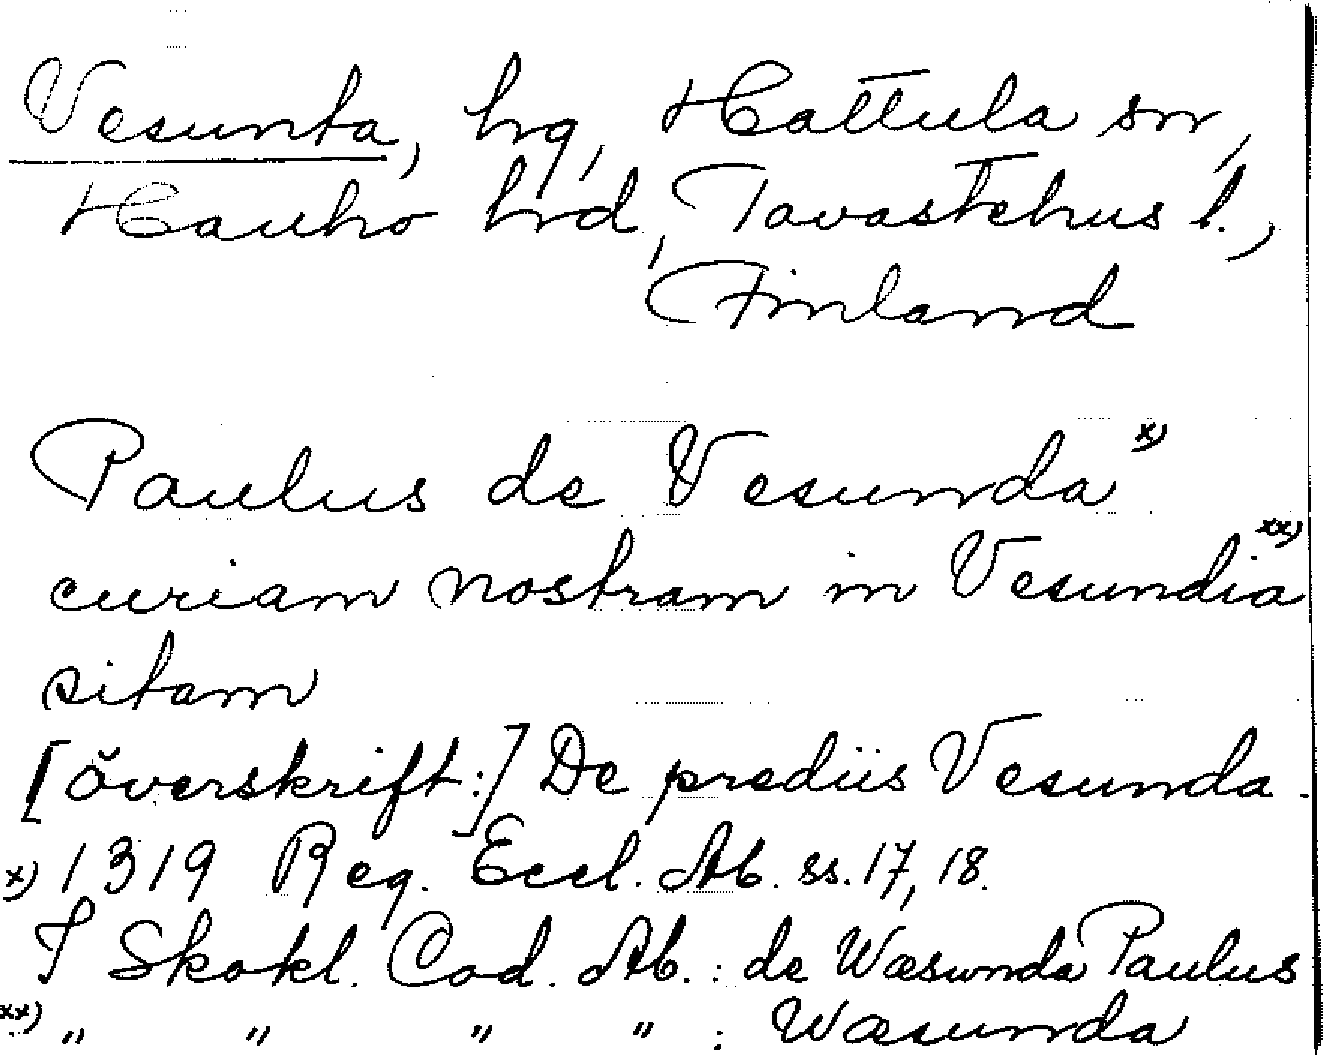 Vesunta, hrg, Hattula sn,
Hauho hrd, Tavastehus l.,
Finland
Paulus de Vesunda x)
curiam nostram in Vesundia xx)
sitam
[överskrift:] De prediis Vesunda.
x) 1319 Reg. Eccl. Ab. ss. 17, 18.
I Skokl. Cod. Ab.: de Wæsunda Paulus
xx) " " " " : Wæsunda